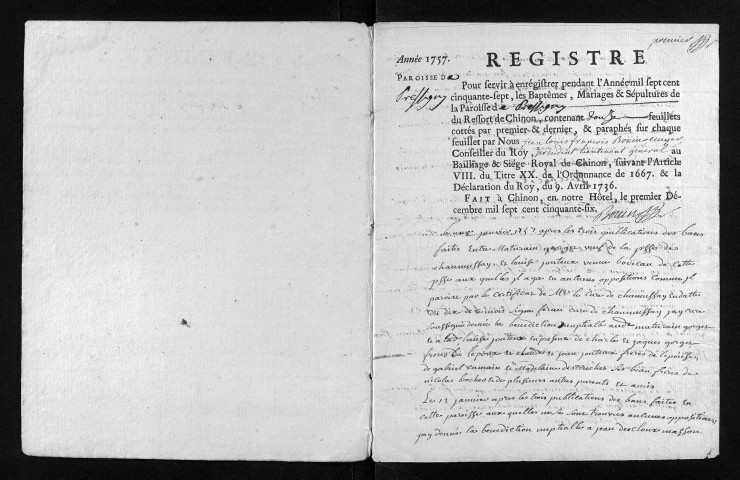 premier
Année 1757.
REGISTRE
PAROISSE de
Pressigny
Pour servir à enrégistrer pendant l'Année mil sept cent
cinquante-sept, les Baptêmes, Mariages & Sépultures de
la Paroisse de Pressigny
du Ressort de Chinon, contenant douze feuillets
cottés par premier & dernier, & paraphés sur chaque
feuillet par Nous jean louis françois
Conseiller du Roy, président lieutenant général au
Bailliage & Siége Royal de Chinon, suivant l'Article
VIII. du Titre XX. de l'Ordonnance de 1667. & la
Déclaration du Roy, du 9. Avril 1736.
FAIT à Chinon, en notre Hôtel, le premier Dé-
cembre mil sept cent cinquante-six.
janvier 1757 apres les trois publications des bans
faites entre Maturain george veuf de la psse de
chaumussay et louise jouteux veuve bodicau de cette
psse aux quelles il ny a eu aucunes oppositions comme il
paroist par le certificat de Mr le Curé de chaumussay en datte
du dix de ce mois signé curé de chaumussay jay curé
soussigné donnée la benediction nuptialle audt maturain george
et a lad louise jouteux en presence de charles et jaques george
freres de lepoux et charles et jean jouteux freres de lepouse,
de gabriel romain et Magdelaine beau frere de
nicolas et de plusieurs autres parents et amis
Le 12 janvier apres les trois publications des bans faites en
cette paroisse aux quelles ne se sont trouvées aucunes oppositions
jay donnée la benediction nuptialle a jean descloux masson